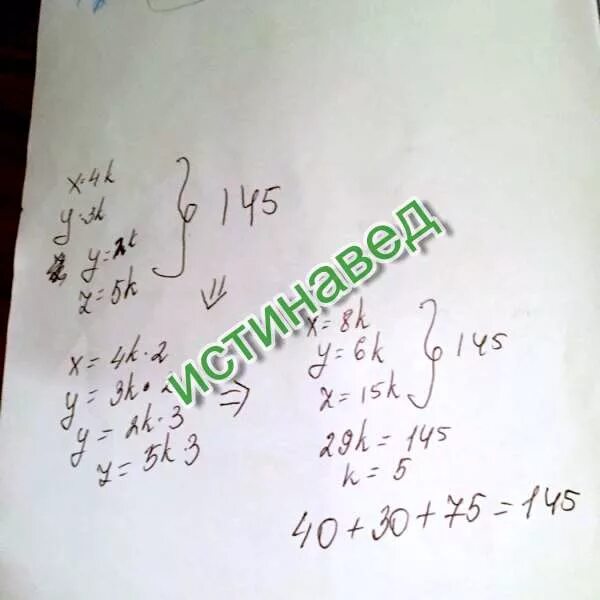 x=4k
y=3k
y=2k
z=5k
} 145
⇓
x=4k·2
y=3k·2
y=2k·3
z=5k·3
⇒
x=8k
y=6k
z=15k
} 145
29k=145
k=5
40+30+75=145
истинавед